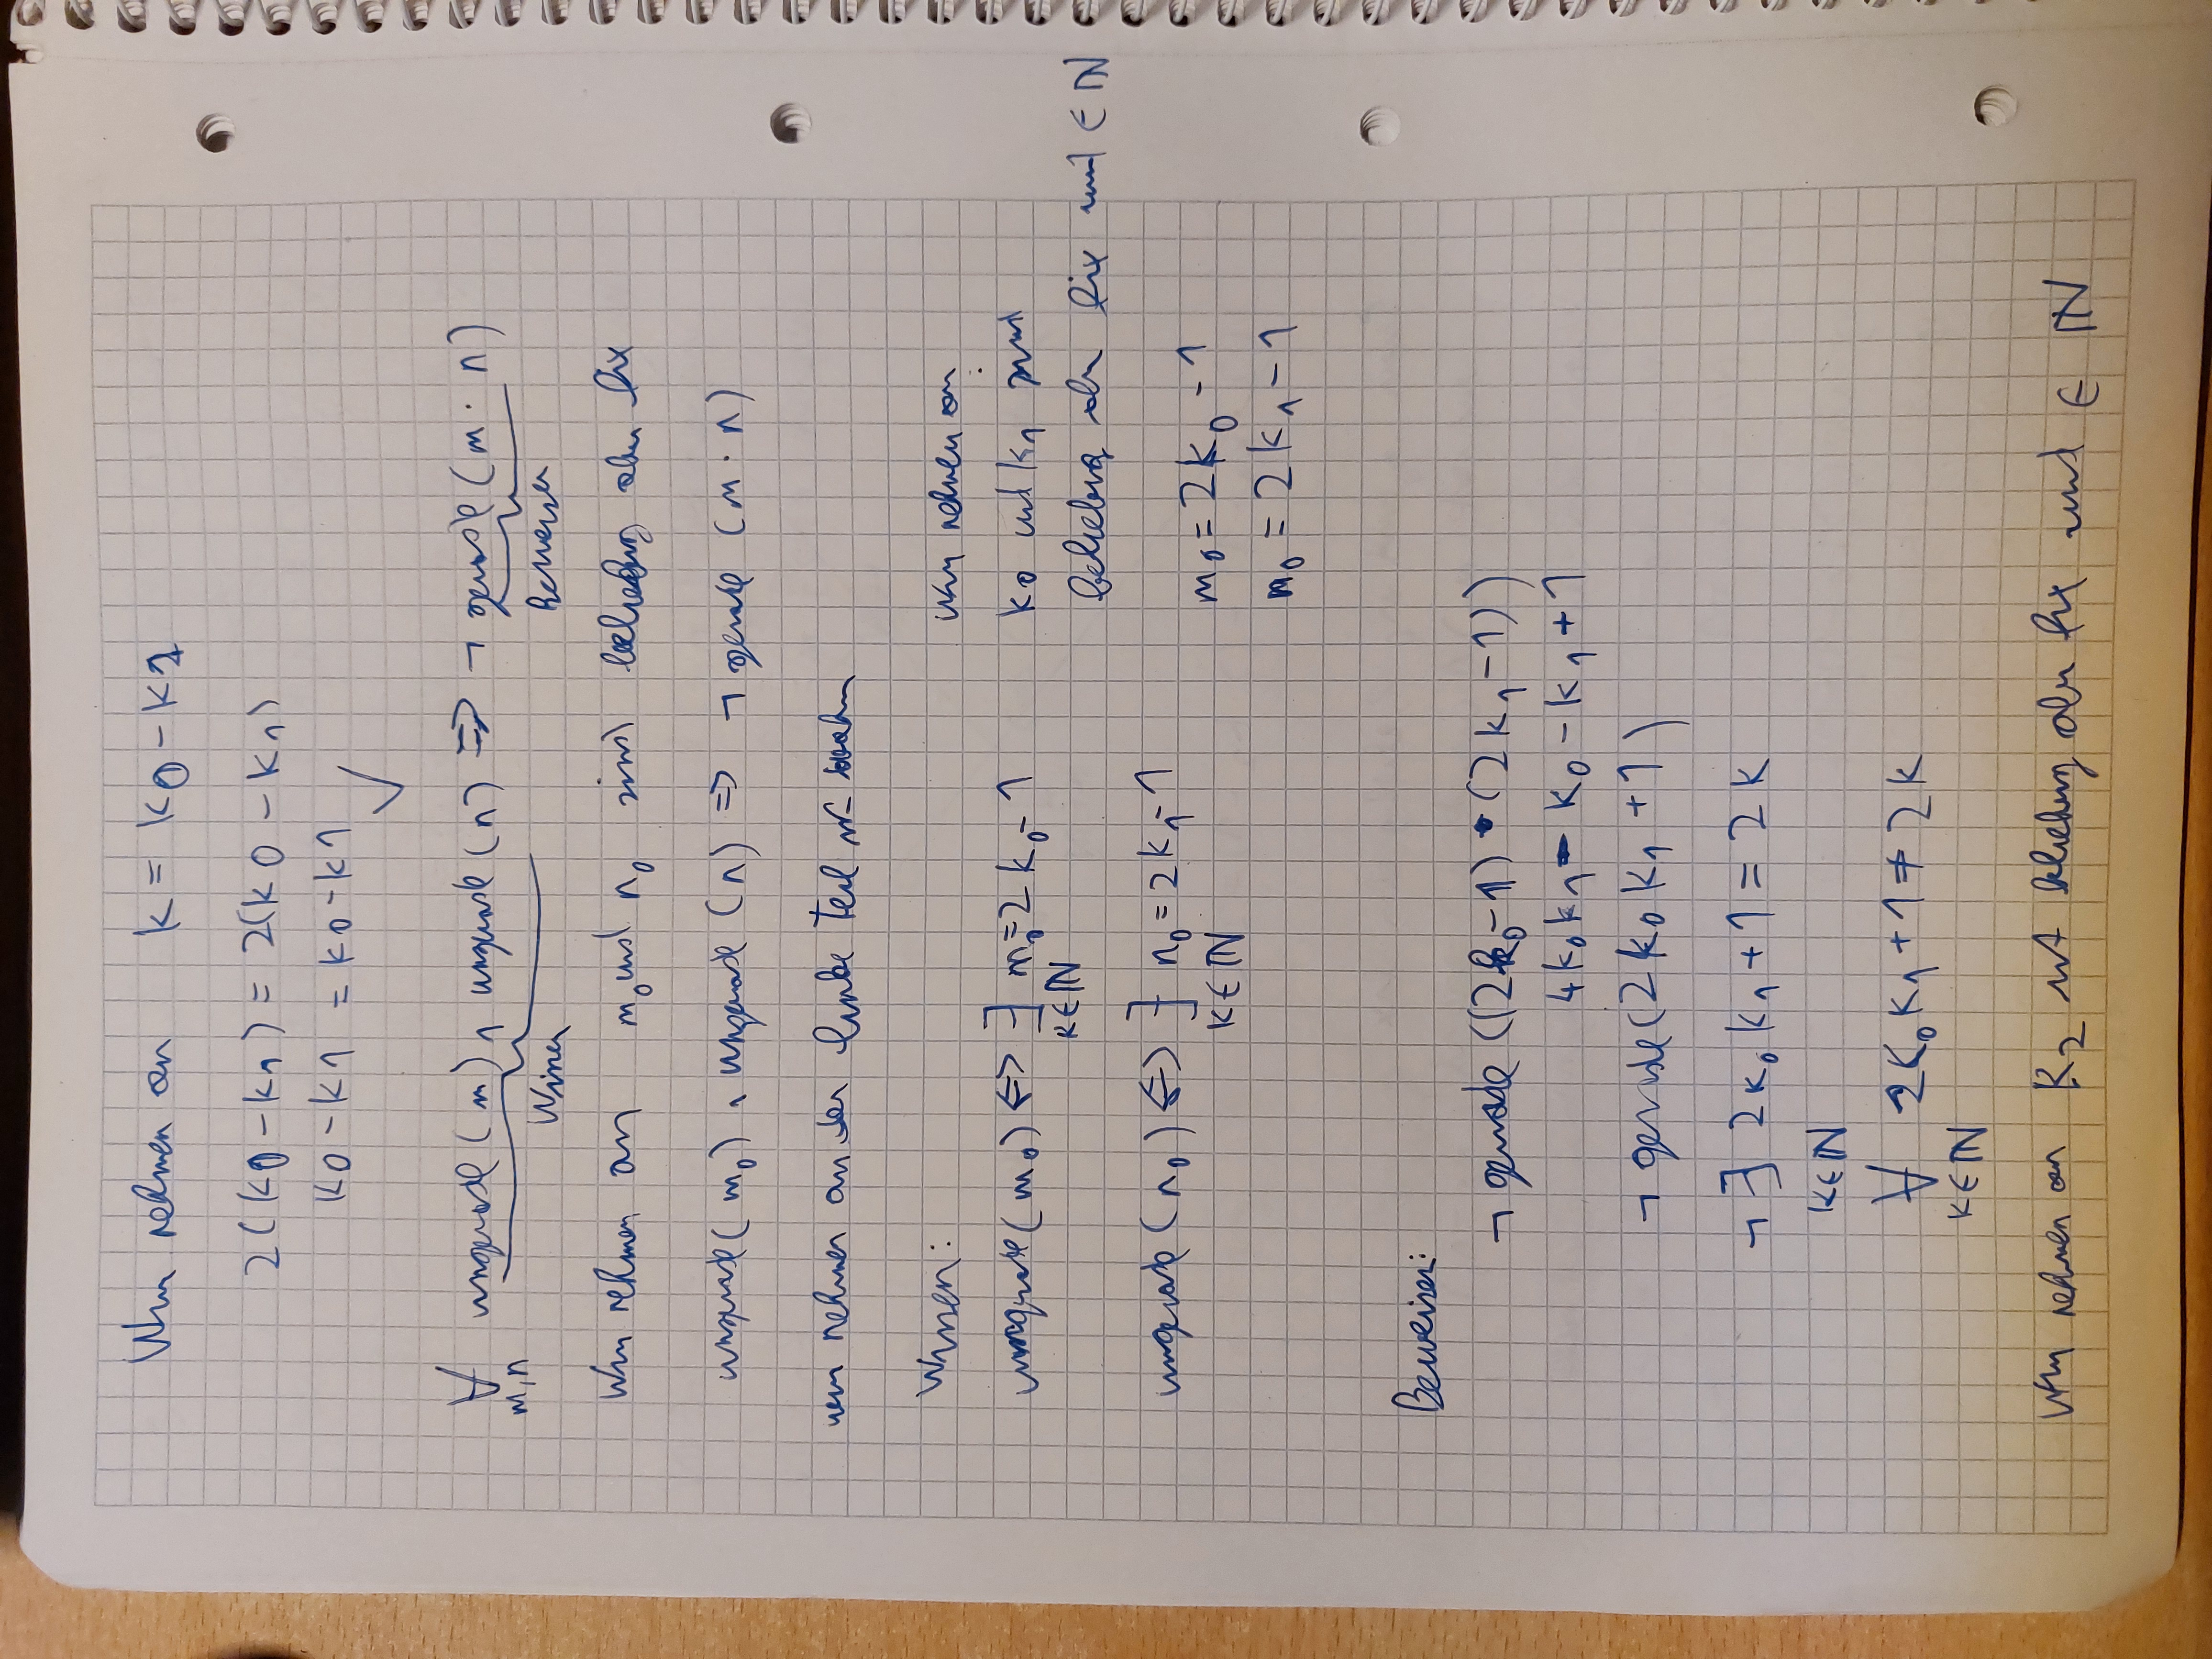 Wir nehmen an k = k0 - k1
2(k0 - k1) = 2(k0 - k1)
k0 - k1 = k0 - k1 ✓
∀ ungerade(m) ∧ ungerade(n) ⇒ ¬ gerade(m · n)
m,n
Wissen Beweisen
Wir nehmen an m₀ und n₀ sind beliebig aber fix
ungerade(m₀) ∧ ungerade(n) ⇒ ¬ gerade (m · n)
wir nehmen an der linke Teil ist wahr
Wissen:
ungerade(m₀) ⇔ ∃ m₀=2k₀-1
k∈ℕ
ungerade(n₀) ⇔ ∃ n₀=2k₁-1
k∈ℕ
Wir nehmen an:
k0 und k₁ sind
beliebig aber fix und ∈ ℕ
m₀=2k₀-1
n₀=2k₁-1
Beweisen:
¬ gerade((2k₀-1)·(2k₁-1))
4k₀k₁ - k₀ - k₁ + 1
¬ gerade(2k₀k₁+1)
¬ ∃ 2k₀k₁+1=2k
k∈ℕ
∀ 2k₀k₁+1≠2k
k∈ℕ
Wir nehmen an k₂ ist beliebig aber fix und ∈ ℕ